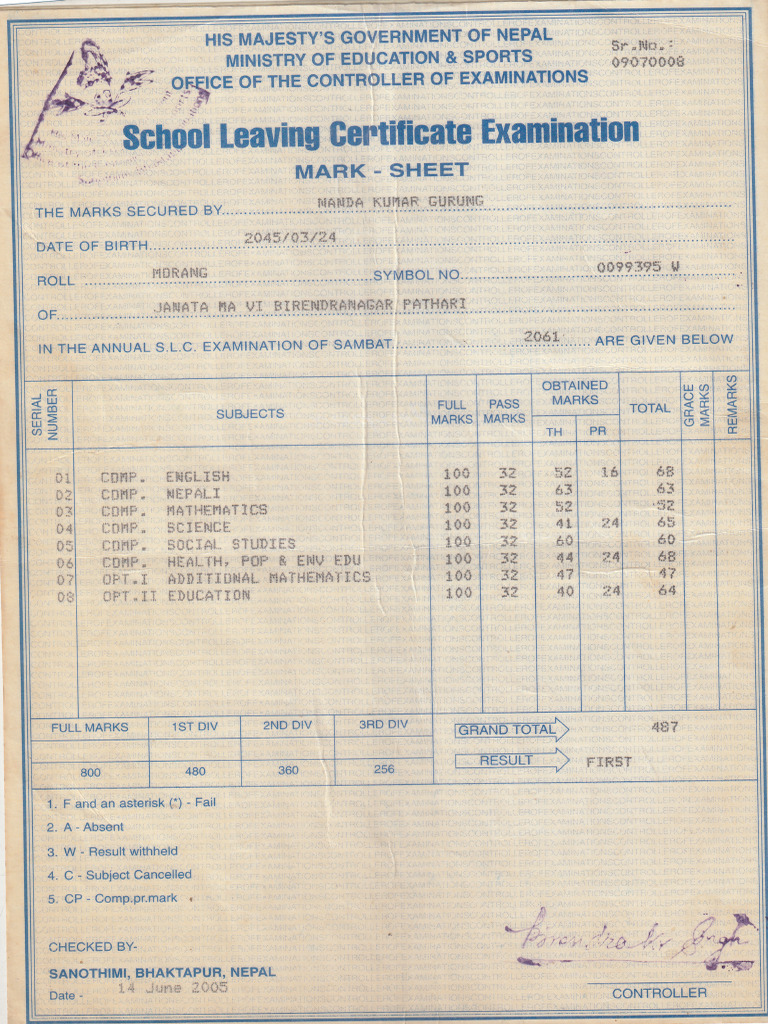 HIS MAJESTY'S GOVERNMENT OF NEPAL
MINISTRY OF EDUCATION & SPORTS
OFFICE OF THE CONTROLLER OF EXAMINATIONS
Sr.No.:
09070008
School Leaving Certificate Examination
MARK - SHEET
THE MARKS SECURED BY NANDA KUMAR GURUNG
DATE OF BIRTH 2045/03/24
ROLL MORANG SYMBOL NO. 0099395 W
OF JANATA MA VI BIRENDRANAGAR PATHARI
IN THE ANNUAL S.L.C. EXAMINATION OF SAMBAT 2061 ARE GIVEN BELOW
SERIAL NUMBER SUBJECTS FULL MARKS PASS MARKS OBTAINED MARKS TH PR TOTAL GRACE MARKS REMARKS
01 COMP. ENGLISH 100 32 52 16 68
02 COMP. NEPALI 100 32 63 63
03 COMP. MATHEMATICS 100 32 52 52
04 COMP. SCIENCE 100 32 41 24 65
05 COMP. SOCIAL STUDIES 100 32 60 60
06 COMP. HEALTH, POP & ENV EDU 100 32 44 24 68
07 OPT.I ADDITIONAL MATHEMATICS 100 32 47 47
08 OPT.II EDUCATION 100 32 40 24 64
FULL MARKS 1ST DIV 2ND DIV 3RD DIV
800 480 360 256
GRAND TOTAL 487
RESULT FIRST
1. F and an asterisk (*) - Fail
2. A - Absent
3. W - Result withheld
4. C - Subject Cancelled
5. CP - Comp.pr.mark
CHECKED BY-
SANOTHIMI, BHAKTAPUR, NEPAL
Date - 14 June 2005
CONTROLLER